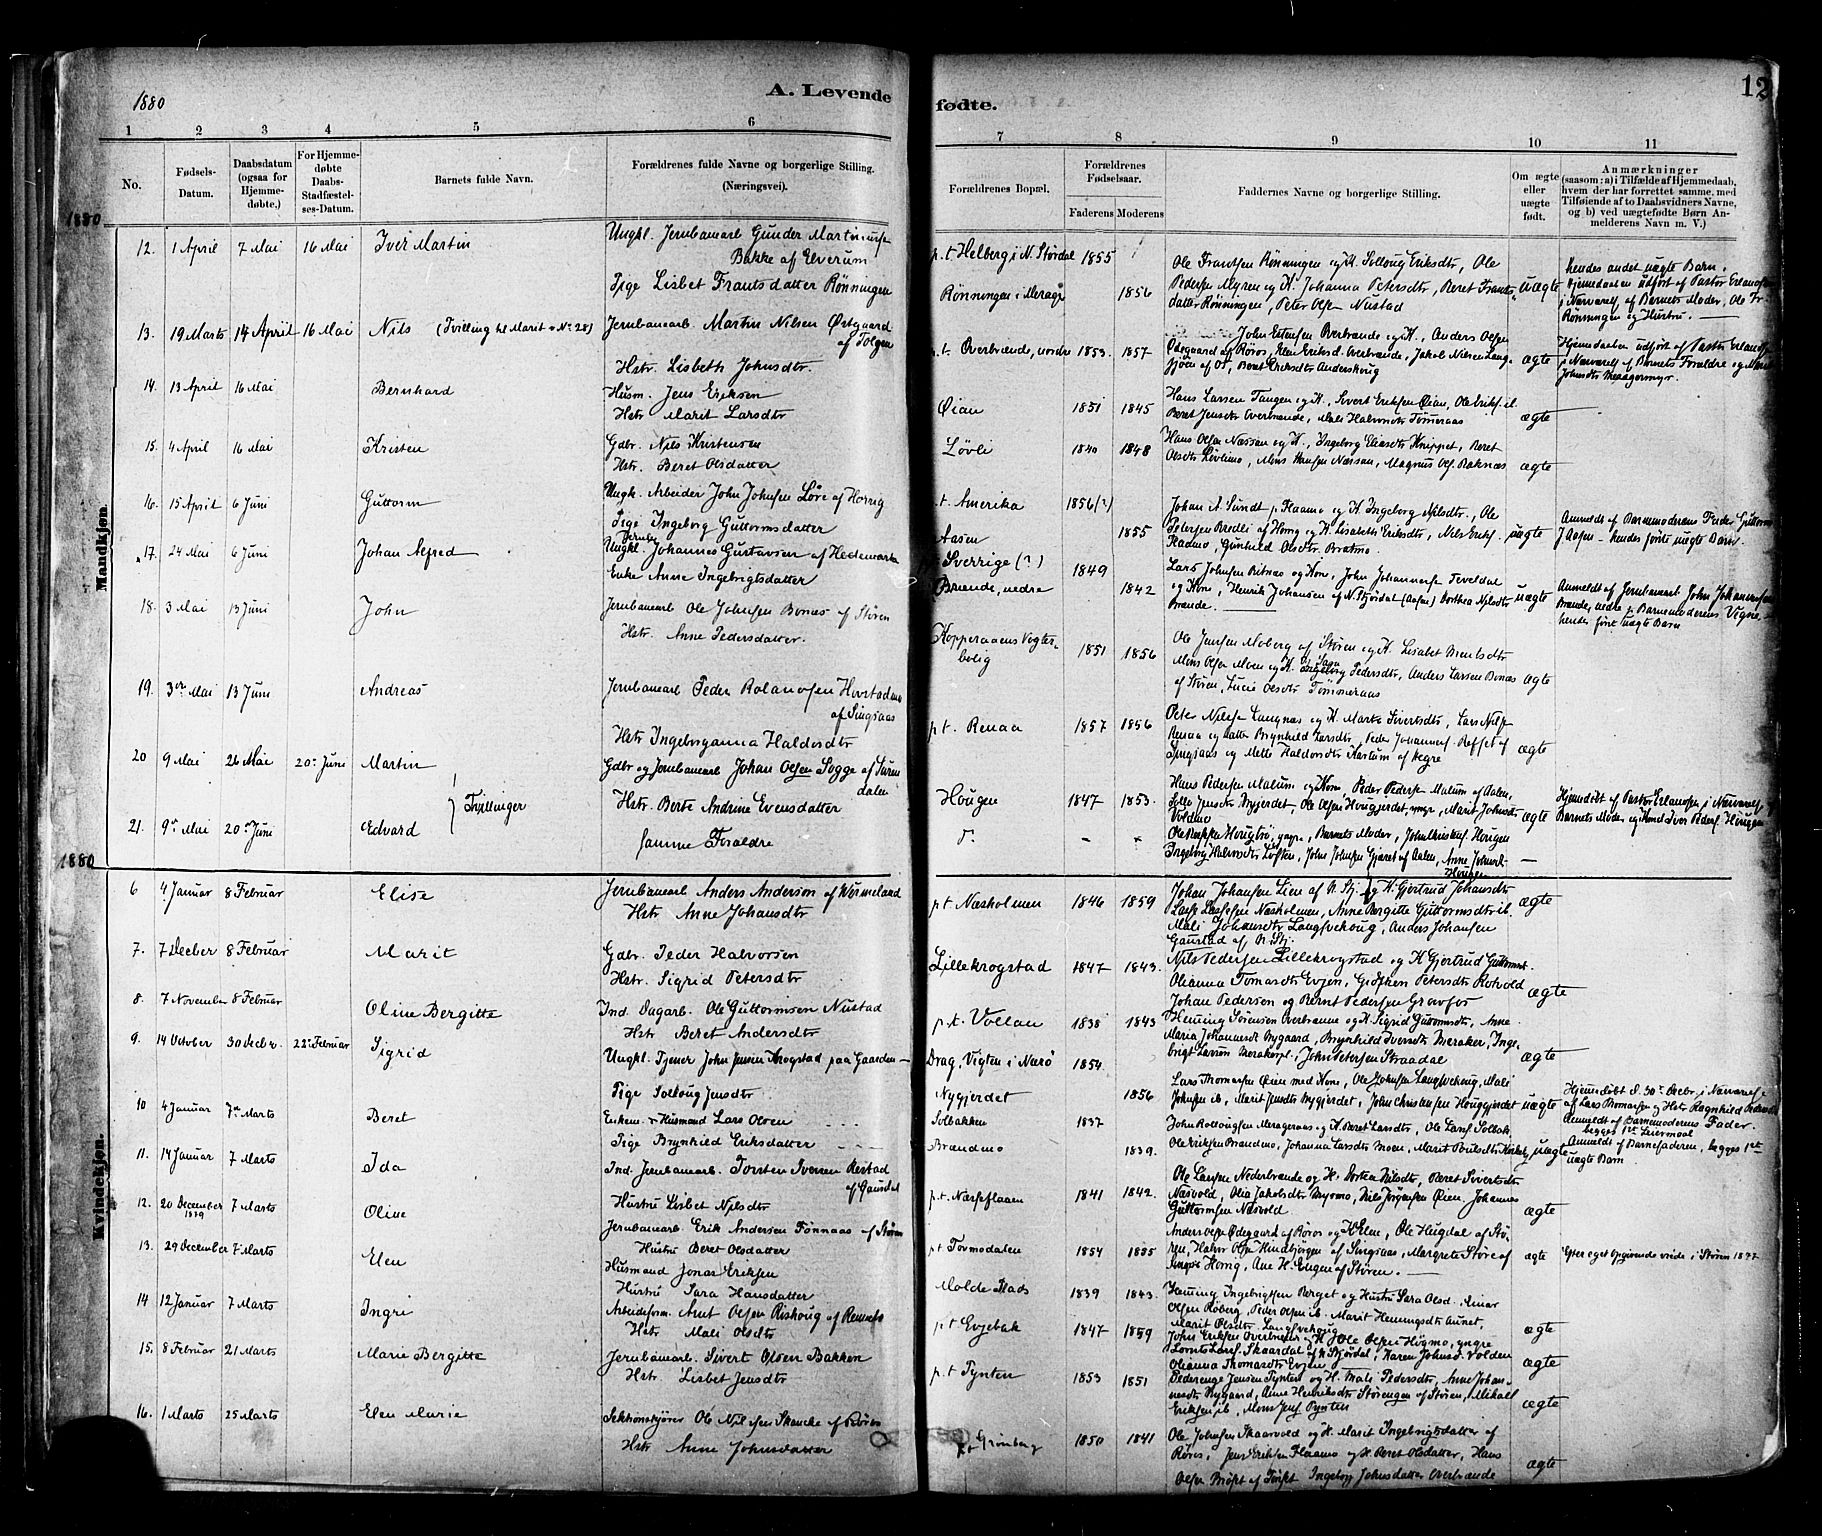 1880
A. Levende
fødte.
12
1 2 3 4 5 6 7 8 9 10 11
No.
Fødsels-
Datum.
Daabsdatum
(ogsaa for
Hjemme-
døbte.)
For Hjemme-
døbte
Daabs-
Stadfæstel-
ses-Datum.
Barnets fulde Navn.
Forældrenes fulde Navne og borgerlige Stilling.
(Næringsvei).
Forældrenes Bopæl.
Forældrenes
Fødselsaar.
Faderens Moderens
Faddernes Navne og borgerlige Stilling.
Om ægte
eller
uægte
født.
Anmærkninger
(saasom: a) i Tilfælde af Hjemmedaab,
hvem der har forrettet samme, med
Tilføiende af to Daabsvidners Navne,
og b) ved uægtefødte Børn An-
melderens Navn m. V.)
1880
Mandkjøn.
12. 1 April 7 Mai 16 Mai Iver Martin Ungkl. Jernbanearb Gunder Martinusen
Bakke af Elverum
p.t Helberg i N. Stördal 1855
Pige Lisbet Frantsdatter Rönningen
Rönningen i Merager 1856
Ole Frantsen Rönningen og K. Sollaug Eriksdtr, Ole
Pedersen Myren og K. Johanna Petersdtr, Beret Frants-
datter Rönningen, Peter Olsen Nustad
uægte
hendes andet uægte Barn.
Hjemmedaaben udfört af Pastor Erlandsen
i Nærværelse af Barnets Moder, Ole Fr.
Rönningen og Hustru.
13. 19 Marts 14 April 16 Mai Nils (Tvilling til Marit No 28) Jernbanearb. Martin Nilsen Østgaard
af Tolgen
Hstr. Lisbeth Johnsdtr.
p.t. Overbrænde, nordre 1853. 1857
John Estensen Overbrænde og K., Anders Olsen
Ødegaard af Røros, Elen Eriksd. Overbrænde, Jakob Nilsen Lang-
sjöen af Os, Beret Eriksdtr Anderskoug
ægte
Hjemmedaaben udfört af Pastor Erlandsen
i Nærværelse af Barnets Forældre og
Johnsdtr Meragermyr.
14. 13 April 16 Mai Bernhard Husm. Jens Eriksen
Hstr Marit Larsdtr
Öian 1851 1845
Hans Larsen Tangen og K., Sivert Eriksen Öian, Ole Eriks. ib
Beret Jensdtr Overbrænde, Mali Halvorsdtr Tömmeraas
ægte
15. 4 April 16 Mai Kristen Gdbr. Nils Kristensen
Hstr. Beret Olsdatter
Lövli 1840 1848
Hans Olsen Næssan og K., Ingeborg Eliasdtr Knippet, Beret
Olsdtr Lövlimo, Mons Hansen Næssan, Magnus Ols. Raknæs
ægte
16. 15 April 6 Juni Guttorm Ungk. Arbeider John Johnsen Löre af Horrig
Pige Ingeborg Guttormsdatter
p.t. Amerika 1856(?)
Aasen 1855
Johan A. Sundt p. Flaamo og K. Ingeborg Nilsdtr, Ole
Petersen Bredli af Horrig og K. Lisabeth Eriksdtr, Nils Eriks.
Kladmo, Gunhild Olsdtr Bratmo.
uægte
Anmeldt af Barnemoderens Fader Guttorm
J. Aasen - hendes förste uægte Barn.
17. 24 Mai 6 Juni Johan Alfred Ungkl. Johannes Gustavsen af Hedemarken
Enke Anne Ingebrigtsdatter
p.t. Sverrige (?) 1849
Brænde, nedre 1842
Lars Johnsen Ritnæs og Kone, John Johannesen Teveldal
og Kone, Henrik Johansen af N. Stjördal (Aasen) Dorthea Nilsdtr
Brænde.
uægte
Anmeldt af Jernbanearb John Johannesen
Brænde, nedre p. Barnemoderens Vegne,
hendes först uægte Barn
18. 3 Mai 13 Juni John Jernbanearb Ole Johnsen Bonæs af Stören
Hstr. Anne Pedersdatter.
Kopperaaens Vogter-
bolig 1851 1856
Ole Jensen Moberg af Stören og K. Lisabet Berntsdtr
Mons Olsen Moen og K. Ingeborg Pedersdtr, Anders Larsen Bonæs
af Stören, Lucie Olsdtr Tömmeraas
ægte
19. 3die Mai 13 Juni Andreas Jernbanearb Peder Rolandsen Hovstadmo
af Singsaas
Hstr Ingeborganna Haldosdtr
p.t. Renaa 1857 1856
Peter Nilsen Langnæs og K. Marta Sivertsdtr, Lars Nils.
Renaa og datter Brynhild Larsdtr, Peder Johannes. Refset af
Singsaas og Mette Haldorsdtr Kastum af Hegre
ægte
20 9 Mai 26 Mai 20de Juni Martin Gdbr og Jernbanearb Johan Olsen Sogge af Suren
dalen
Hstr. Berte Andrine Evensdatter
} Tvillinger
Hougen 1847 1853.
Hans Pedersen Malum og Kone, Peder Pedersen Malum af Aalen,
Solle Jensdtr Nygjerdet, Ole Olsen Hougjerdet, yngre, Marit Johnsd.
Voldmo
ægte
Hjemmedöbt af Pastor Erlandsen i Nærværelse
Barnets Moder og Kand Iver Peders. Hougen
21. 9de Mai 20de Juni Edvard Samme Forældre
Barnets Moder, John Kristens. Hougen
Ingeborg Halvorsdtr Loften, John Johnsen Gjæret af Aalen, Anne Johnsd.
Hougen
1880
Kvindekjøn.
6 4. Januar 8 Februar Elise Jernbanearb Anders Anderson af Wermeland
Hstr Anne Johansdtr
p.t Næsholmen 1846 1859
Johan Johansen Lien af N. Stj. og K. Gjertrud Johansdtr
Lars Larsen Næsholmen, Anne Bergitte Guttormsdtr ib.
Mali Johansdtr Langsvekoug, Anders Johansen
Gaustad af N. Stj.
ægte
7. 7 Decber 8 Februar Marit Gdbr. Peder Halvorsen
Hstr. Sigrid Petersdtr
Lillekrogstad 1847 1843.
Nils Pedersen Lillekrogstad og K Gjertrud Guttormsd.
Olianna Tomasdtr Evjen, Gretchen Petersdtr Rotvold
Johan Pedersen og Bernt Pedersen Gravfos
ægte
8. 7 November 8 Februar Oline Bergitte Ind. Dagarb. Ole Guttormsen Nustad
Hstr Beret Andersdtr
p.t. Vollan 1838 1843
Hemming Sörensen Overbrænne og K. Sigrid Guttormsdtr, Anne
Maria Johannesdt Nygaard, Brynhild Iversdtr Meraker, Inge-
brigt Larsen Merakerpl., John Petersen Straadal
ægte
9. 14 October 30 Decbr. 22de Februar Sigrid Ungkl. Tjener John Jensen Krogstad paa Gaarden
Drag, Vigten i Nærö 1854
Pige Solloug Jensdtr
Nygjerdet 1856
Lars Thomassen Öien med Kone, Ole Johnsen Langsvekoug, Mali
Johnsen ib, Marit Jensdtr Nygjerdet, John Christensen Hougjerdet
uægte
Hjemmedöbt d. 30te Decbr. i Nærværelse
af Lars Thomassen og Hstr Ragnhild Pedersdtr
Anmeldt af Barnemoderens Fader.
begges 1ste Leiermaal
10 4 Januar 7de Marts Beret Enkem. & Husmand Lars Olsen
Pige Brynhild Eriksdatter
Solbakken 1837
Brandmo 1839.
John Rollougsen Meragersaas og K. Beret Larsdtr, Ole Lars. Solbak.
Ole Eriksen Brandmo, Johanna Larsdtr Moen, Marit Poulsdtr Kirkeby
uægte
Anmeldt af Barnefaderen, begges 1ste
uægte Barn
11. 14 Januar 7 Marts Ida Ind. Jernbanearb. Torsten Iversen Kestad
af Gausdal
Hustru Lisbet Nilsdtr
p.t. Næsseflaaen 1841 1842.
Ole Larsen Nederbrænde og H. Dorten Nilsdtr, Beret Sivertsdtr
Næsvold, Olia Jakobsdtr Mymo, Nils Jörgensen Öien, Johannes
Guttormsen Næsvold
ægte
12. 20 December 1879 7 Marts Oline Jernbanearb. Erik Andersen Fönnaas af Stören
Hustru Beret Olsdatter
pt Tovmodalen 1854 1855
Anders Olsen Ödegaard af Röros og H Elen, Ole Hugdal af Stö-
ren, Halvor Olsen Hindbjörgen af Singsaas, Margrete Störe af
Horrig, Ane H. Engen af Stören.
ægte
Efter eget opgivende viede i Stören 1877
13. 29 December 7 Marts Elen Husmand Jonas Eriksen
Hustru Sara Hansdatter
Molde Stads 1839 1843.
Hemming Ingebrigtsen Berget og Hustru Sara Olsd., Einar
Olsen Röberg, Peder Olsen ib. Marit Hemmingsdtr Aunet,
Marit Olsdtr Langsvekoug
ægte
14 12 Januar 7 Marts Ingri Arbeidsform. Arnt Olsen Riskoug af Rennebo
Hstr. Mali Olsdtr
p.t Evjebak 1847 1859
John Eriksen Overbrænde og K. Ole Olsen Högmo, yngre
Lornts Lars. Skaardal af N. Stjördal, Karen Johnsd. Volden
Olianna Thomasdtr Evjen
ægte
15. 8 Februar 21 Marts Marie Bergitte Jernbanearb. Sivert Olsen Bakken
Hstr. Lisbet Jensdtr
p.t Tynten 1853 1851
Pederenge Jensen Tynten og H. Mali Pedersdtr, Anne Johan-
nesdtr Nygaard, Anne Henriksdtr Störengen af Stören, Mikall
Eriksen ib, Mons Jens. Tynten
ægte
16. 1 Marts 25 Marts Elen Marie Sektionskjörer Ole Nilssen Skancke af Röros
Hstr Anne Johnsdatter
pt Grönberg 1850 1841
Ole Johnsen Skaarvold og K. Marit Ingebrigtsdatter af
Röros, Jens Eriksen Flaamo og K. Beret Olsdatter, Hans
Olsen Bröset af Tönset Ingeborg Johnsdatter Overbrænde
ægte